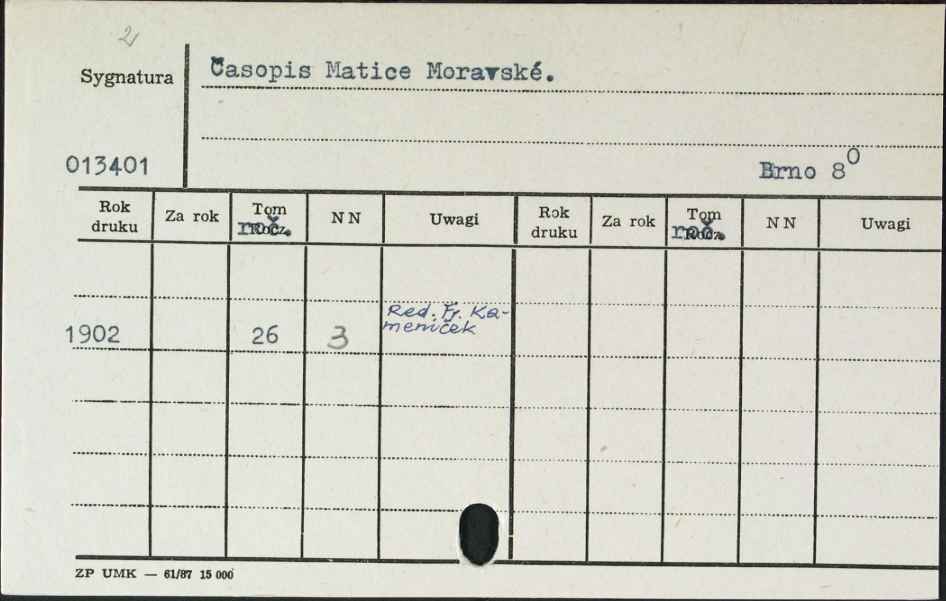 2
Sygnatura
Časopis Matice Moravské.
013401
Brno 8⁰
Rok druku Za rok Tom roč. N N Uwagi Rok druku Za rok Tom roč. N N Uwagi
Red. Fr. Ka-
1902 26 3 meníček
ZP UMK — 61/87 15 000